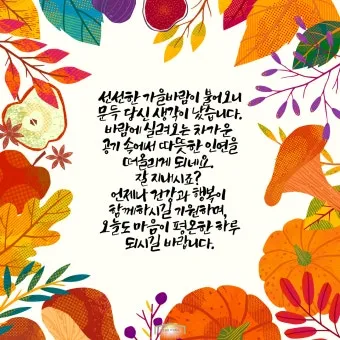 선선한 가을바람이 불어오니
문득 당신 생각이 났습니다.
바람에 실려오는 차가운
공기 속에서 따뜻한 인연을
떠올리게 되네요.
잘 지내시죠?
언제나 건강과 행복이
함께하시길 기원하며,
오늘도 마음이 평온한 하루
되시길 바랍니다.